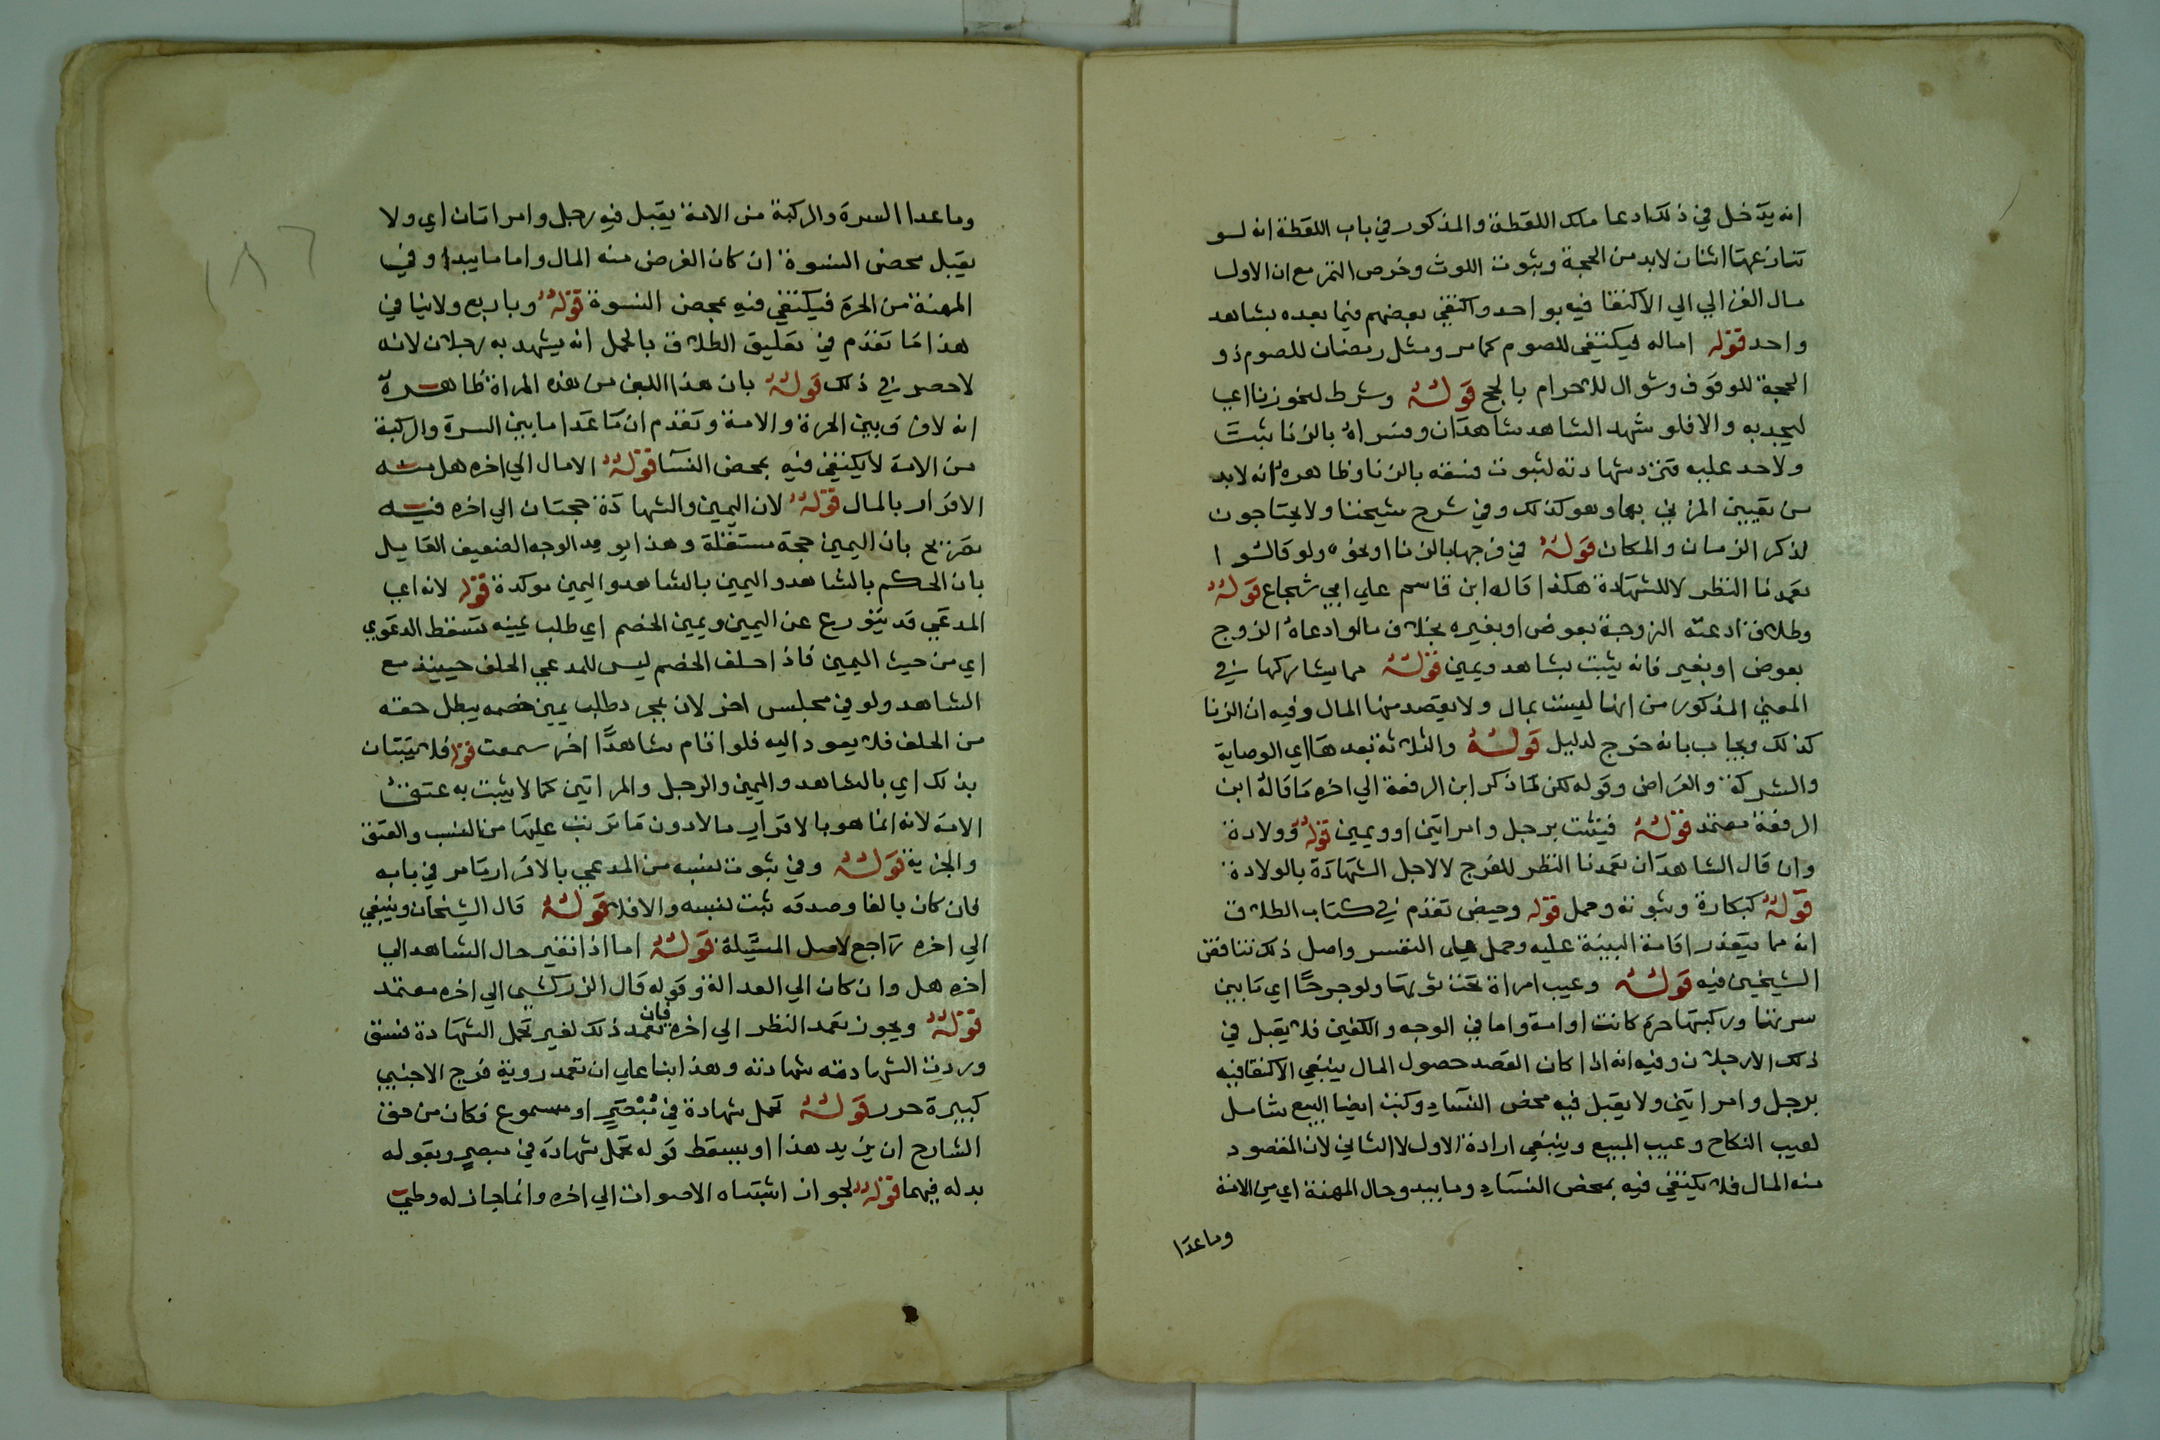 انه يدخل في ذلك ادعا ملك اللقطة والمذكور في باب اللقطة انه لو
تنازعها اثنان لابد من الحجة وثبوت اللوث وخرص التمر مع ان الاول
مال الغزالي الي الاكتفا فيه بواحد واكتفي بعضهم فيما بعده بشاهد
واحد قوله اماله فيكتفي للصوم كما مر ومثل رمضان للصوم ذو
الحجة للوقوف وشوال للاحرام بالحج قوله وشرط لنحو زنا اي
ليحد به والا فلو شهد الشاهد شاهدان ومسراه بالزنا ثبت
ولا حد عليه فترد شهادته لثبوت فسقه بالزنا وظاهره انه لابد
من تعيين المزني بها وهو كذلك وفي شرح شيخنا ولا يحتاجون
لذكر الزمان والمكان قوله في فرجها بالزنا او نحوه ولو قالوا
تعمدنا النظر لا للشهادة هكذا قاله ابن قاسم علي ابي شجاع قوله
وطلاق ادعته الزوجة بعوض او بغيره بخلاف ما لو ادعاه الزوج
بعوض او بغير فانه يثبت بشاهد ويمين قوله مما يشاركها في
المعني المذكور من انها ليست بمال ولا يقصد منها المال وفيه ان الزنا
كذلك ويجاب بانه خرج لدليل قوله والثلاثة بعدها اي الوصاية
والشركة والقراض وقوله لكن لما ذكر ابن الرفعة الي اخره ما قاله ابن
الرفعة معتمد قوله فيثبت برجل وامراتين او ويمين قوله وولادة
وان قال الشاهدان تعمدنا النظر للفرج لا لاجل الشهادة بالولادة
قوله كبكارة وثبوته وحمل قوله وحيض تقدم في كتاب الطلاق
انه مما يتعذر اقامة البينة عليه وحمل علي التعسر واصل ذلك تناقض
الشيخين فيه قوله وعيب امراة تحت ثوبها ولو جرحا اي ما بين
سرتها وركبتها حرة كانت او امة واما في الوجه والكفين فلا يقبل في
ذلك الا رجلان وفيه انه اذا كان القصد حصول المال ينبغي الاكتفا فيه
برجل وامراتين ولا يقبل فيه محض النساء وكتب ايضا البيع شامل
لعيب النكاح وعيب المبيع وينبغي ارادة الاول لا الثاني لان المقصود
منه المال فلا يكتفي فيه بمحض النساء وما يبدو حال المهنة اي من الامة
وماعدا
وما عدا السرة والركبة من الامة يقبل فيه رجل وامراتان اي ولا
يقبل محض النسوة ان كان الغرض منه المال واما ما يبدا وفي
المهنة من الحرة فيكتفي فيه بمحض النسوة قوله وباربع ولاينافي
هذا ما تقدم في تعليق الطلاق بالحمل انه يشهد به رجلان لانه
لا حصر في ذلك قوله بان هذا اللبن من هذه المراة ظاهره
انه لا فرق بين الحرة والامة وتقدم ان ما عدا ما بين السرة والركبة
من الامة لا يكتفي فيه بمحض النسا قوله الامال الي اخره هل مثله
الاقرار بالمال قوله لان اليمين والشهادة حجتان الي اخره فيه
تصريح بان اليمين حجة مستقلة وهذا يويد الوجه الضعيف القايل
بان الحكم بالشاهد واليمين بالشاهد واليمين موكدة قوله لانه اي
المدعي قد يتورع عن اليمين ويمين الخصم اي طلب يمينه تسقط الدعوي
اي من حيث اليمين فاذا حلف الخصم ليس للمدعي الحلف حينيذ مع
الشاهد ولو في مجلس اخر لان بمجرد طلب يمين خصمه يبطل حقه
من الحلف فلا يعود اليه فلو اقام شاهدا اخر سمعت قوله فلا يثبتان
بذلك اي بالشاهد واليمين والرجل والمراتين كما لا يثبت به عتق
الامة لانه انما هو بالاقرار مالا دون ما ترتب عليها من النسب والعتق
والجزية قوله وفي ثبوت نسبه من المدعي بالاقرار ما مر في بابه
فان كان بالغا وصدقه ثبت نسبه والا فلا قوله قال الشيخان وينبغي
الي اخره راجع لاصل المسيلة قوله اما اذا تغير حال الشاهد الي
اخره هل وان كان الي العدالة وقوله قال الزركشي الي اخره معتمد
قوله ويجوز تعمد النظر الي اخره فان تعمد ذلك لغير تحمل الشهادة فسق
وردت الشهادته شهادته وهذا بنا علي ان تعمد روية فرج الاجنبي
كبيرة حرر قوله تحمل شهادة في مبصر او مسموع فكان من حق
الشارح ان يزيد هذا او يسقط قوله تحمل شهادة في مبصر ويقوله
بدله فيهما قوله لجواز اشتباه الاصوات الي اخره وانما جاز له وطي